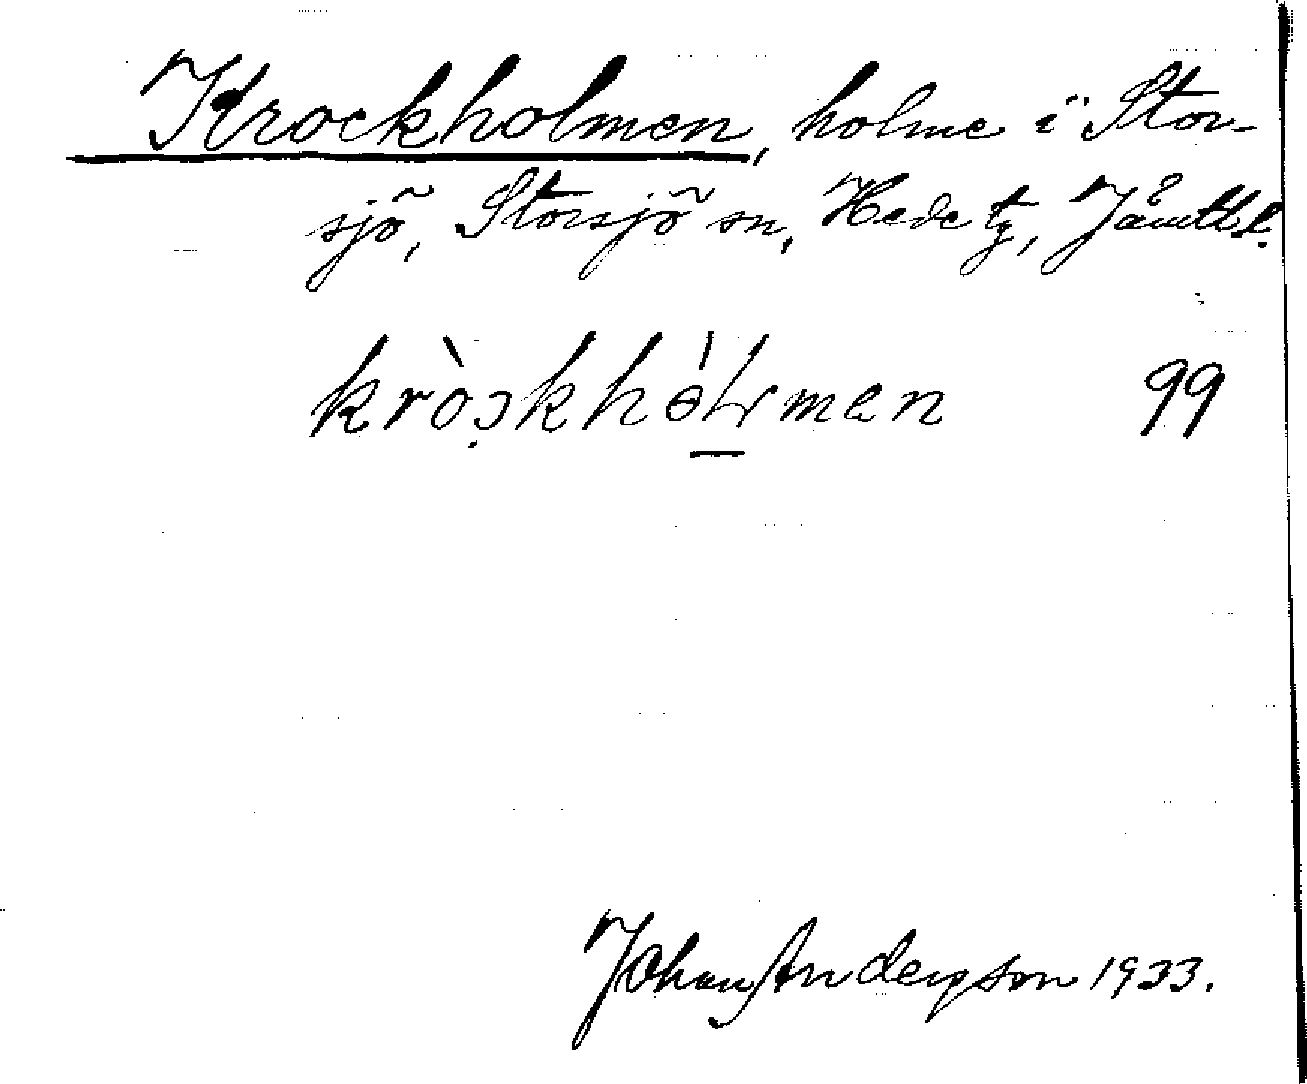 Krockholmen, holme i Stor-
sjö, Storsjö sn, Hede tg, Jämtl l.
99
Johan Anderson 1933.